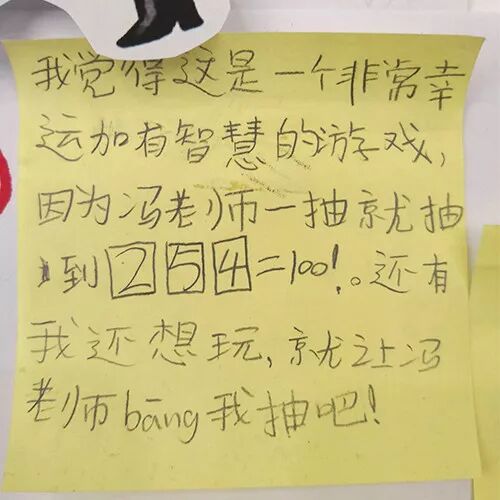 我觉得这是一个非常幸
运加有智慧的游戏，
因为冯老师一抽就抽
到254=100!。还有
我还想玩，就让冯
老师bāng我抽吧!